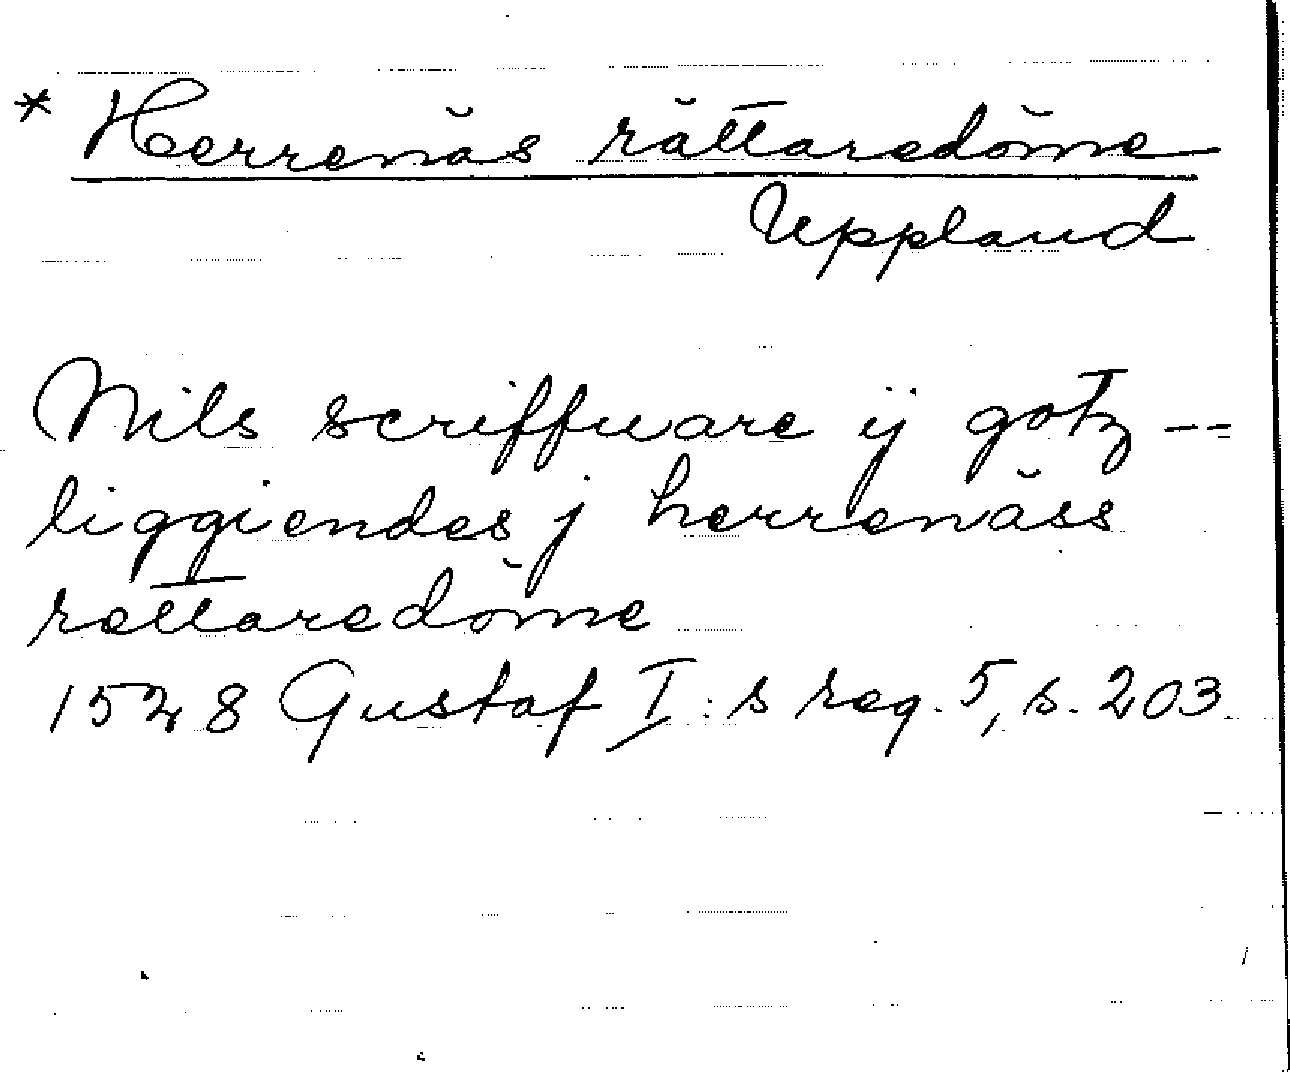 * Herrenäs rättaredöme
Uppland
Nils scriffware ij gotz --
liggiendes j herrenäss
rettaredöme
1528 Gustaf I:s reg. 5, s. 203